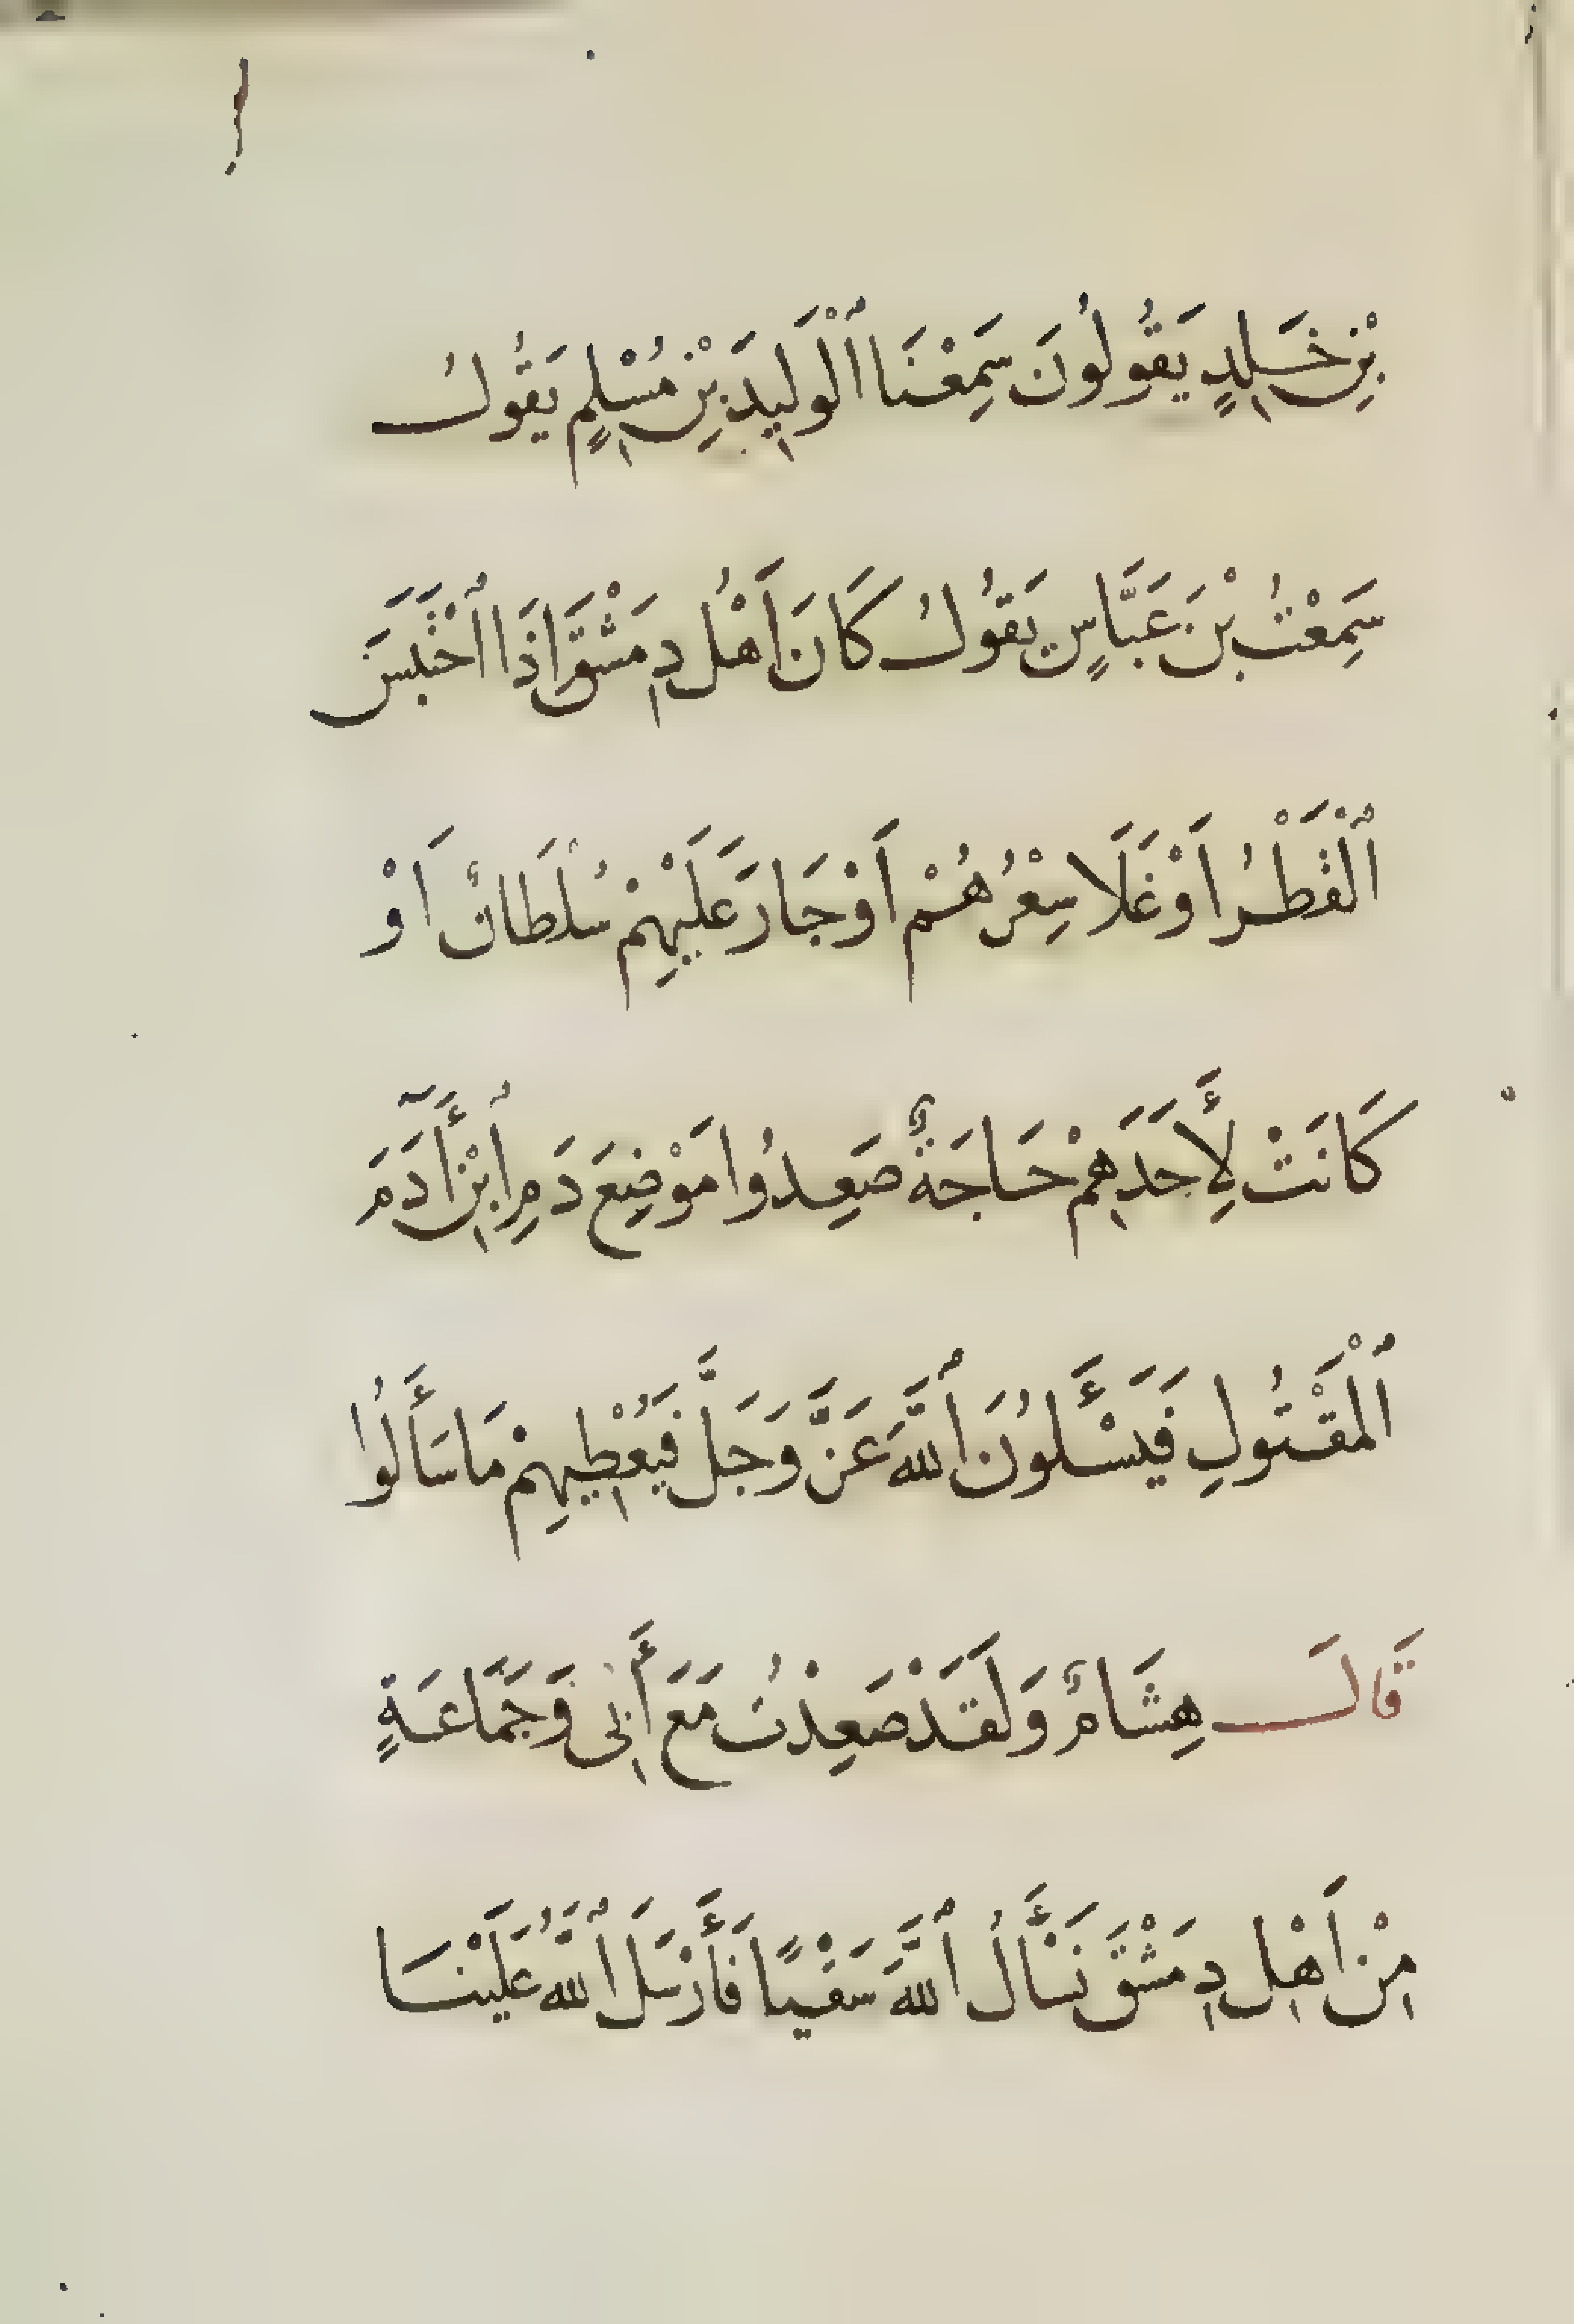 بْنِ خَلِدٍ يَقُولُونَ سَمِعْنَا ٱلْوَلِيدَ بْنِ مُسْلِمٍ يَقُولُ
سَمِعْتُ بْنَ عَبَّاسٍ يَقُولُ كَانَ اَهْلُ دِمَشْقَ اذَا ٱحْتَبَسَ
ٱلْقَطْرُ اَوْ غَلَا سِعْرُهُمْ اَوْ جَارَ عَلَيْهِمْ سُلْطَانٌ اَوْ
كَانَتْ لِأَحَدَهِمْ حَاجَةٌ صَعِدُوا مَوْضِعَ دَمِ ٱبْنِ أَدَمَ
ٱلْمَقْتُولِ فَيَسْـَٔلُونَ ٱللَّهَ عَزَّ وَجَلَّ فَيُعْطِيهِمْ مَا سَأَلُوا
قَالَ هِشَامٌ وَلَقَدْ صَعِدْتُ مَعَ أَبِى وَجَمَّاعَةٍ
مِنْ اَهْلِ دِمَشْقَ نَسْأَلُ ٱللَّهَ سَقْيًا فَأَرْسَلَ ٱللَّهُ عَلَيْنَا